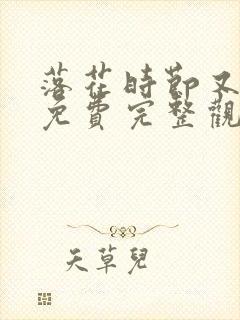 落花時節又
免費完整觀
天草兒